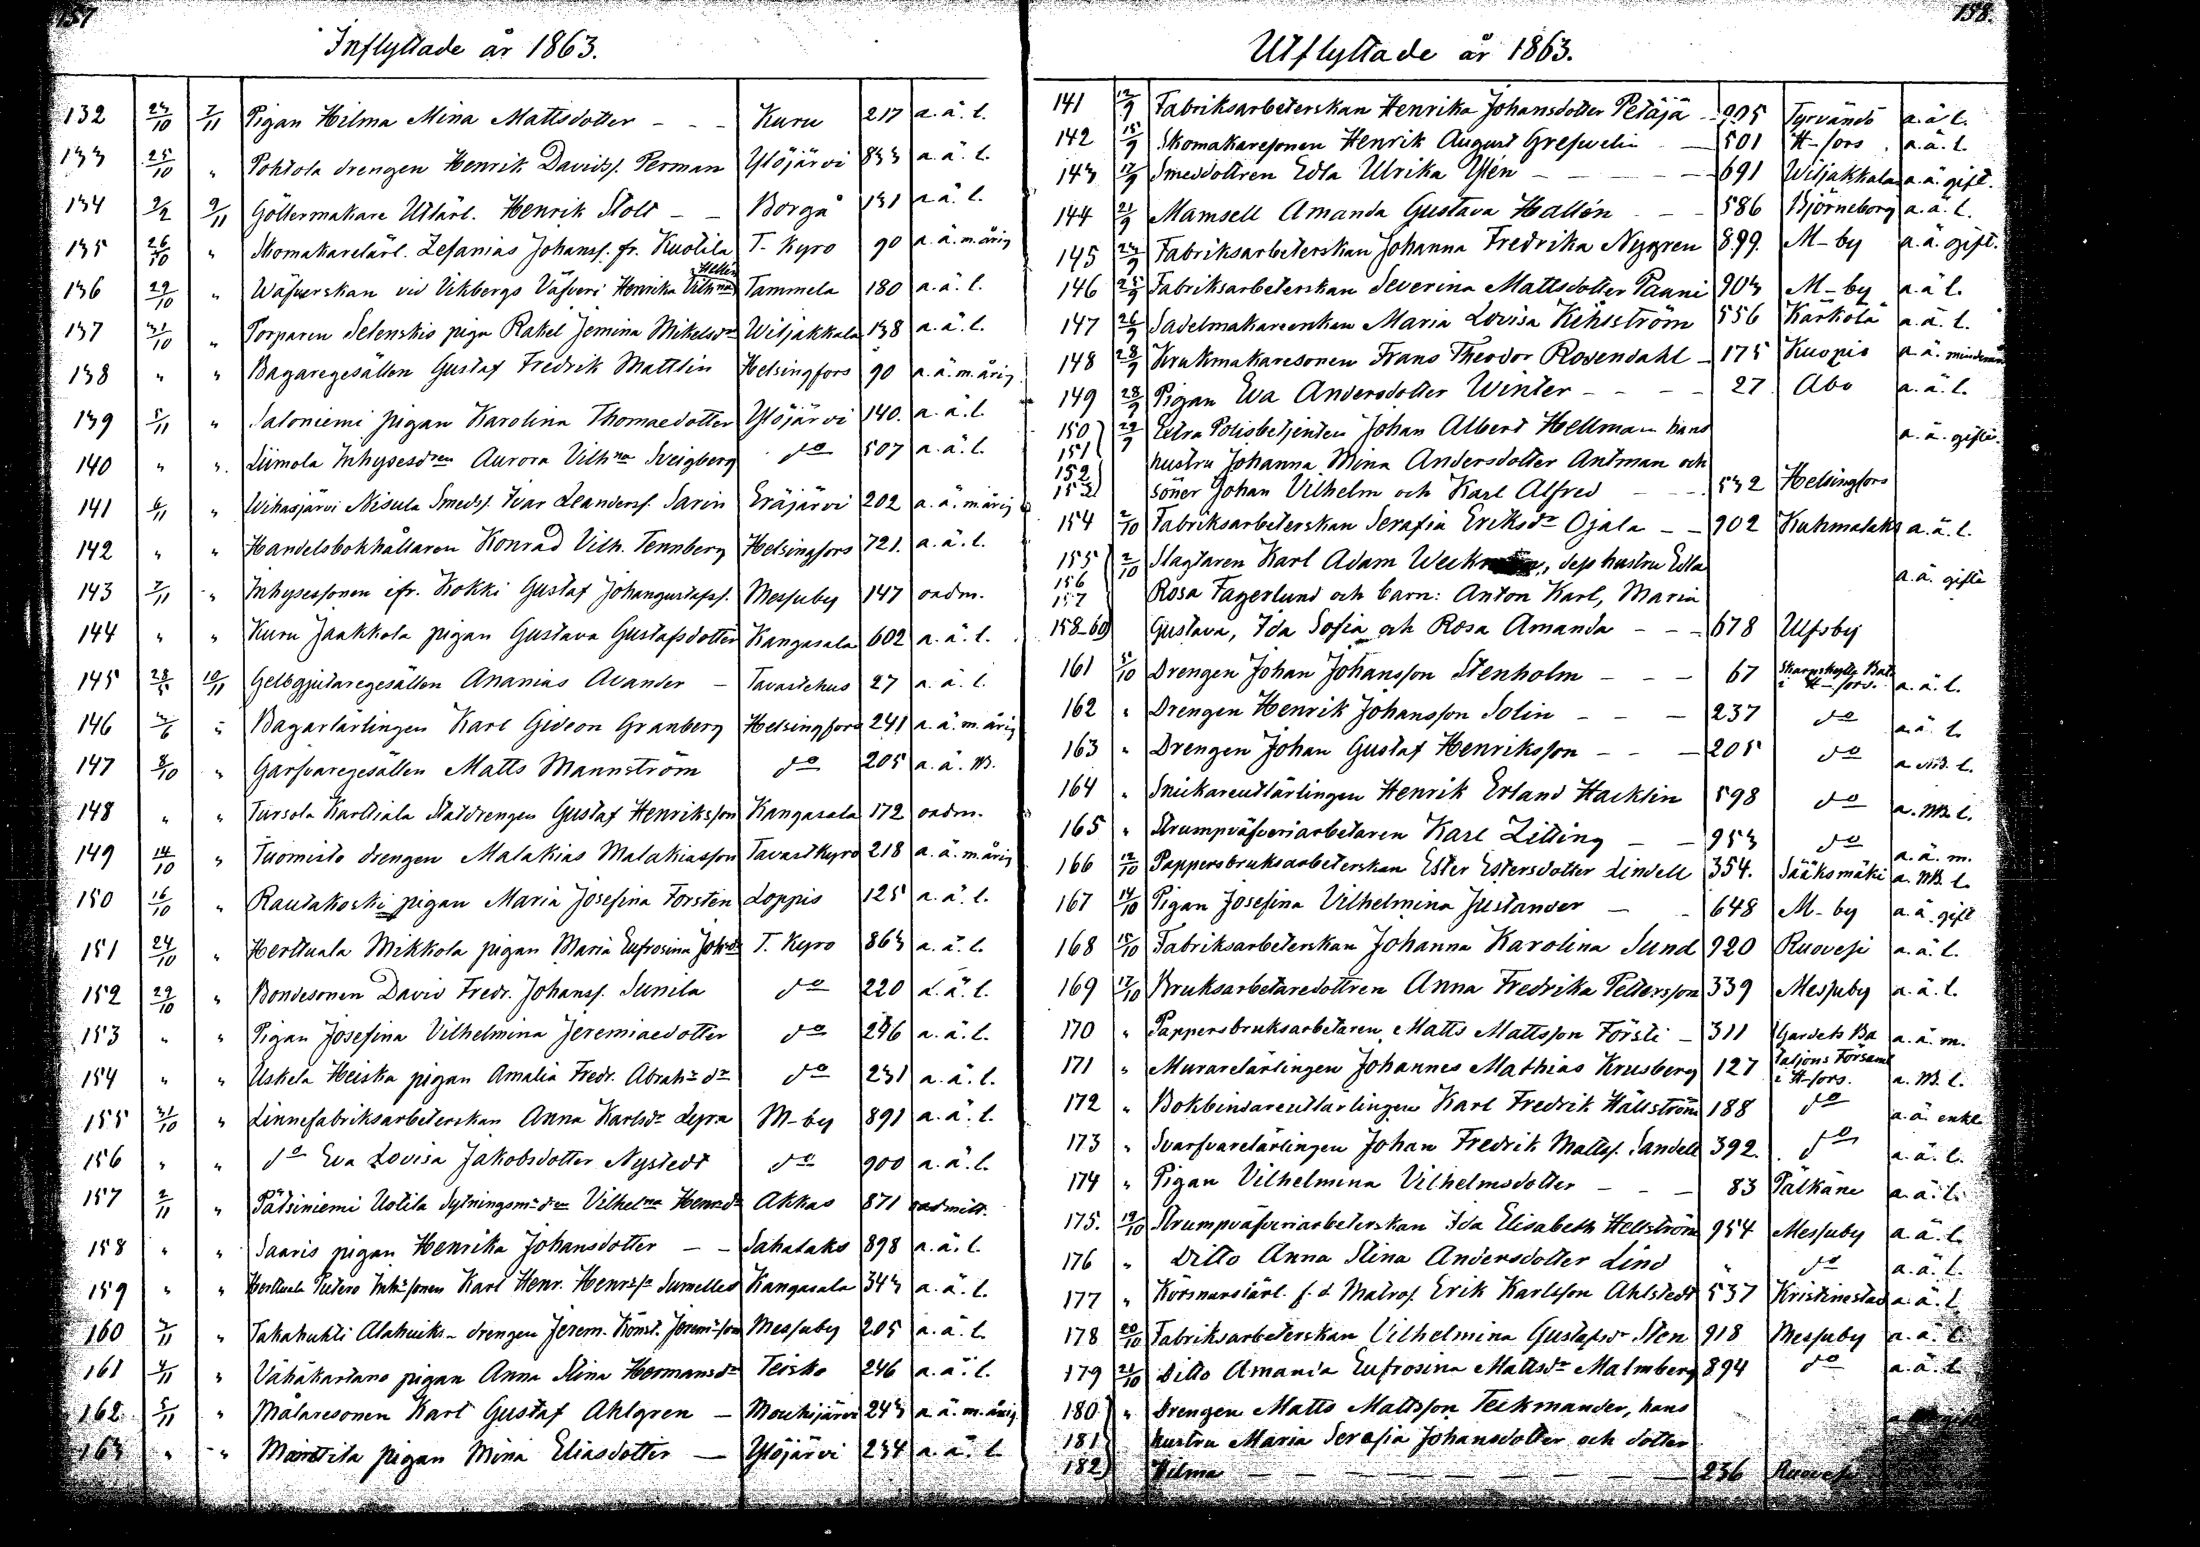 157
Inflyttade år 1863.
132 23/10 7/11 Pigan Hilma Mina Mattsdotter - - - Kuru 217 a. ä. l.
133 25/10 " Pohtola drengen Henrik Davidss. Perman Ylöjärvi 833 a. ä. l.
134 2/2 9/11 Göllermakare Utlärl. Henrik Stolt - - Borgå 131 a ä. l.
135 26/10 " Skomakarelärl. Zefanias Johanss. fr. Kuotila T. Kyro 90 a. ä. m. årig
136 29/10 " Wäfverskan vid Vikbergs Väfveri Henrika Vilhna Hellin Tammela 180 a. ä. l.
137 31/10 " Torparen Selenskis piga Rakel Jemina Mikelsdr Wiljakkala 138 a. ä. l.
138 " " Bagaregesällen Gustaf Fredrik Mattlin Helsingfors 90 a. ä. m. årig
139 5/11 " Saloniemi pigan Karolina Thomaedotter Ylöjärvi 140. a. ä. l.
140 " " Liimola Inhysesdren Aurora Vilhna Sveigberg do 507 a. ä. l.
141 6/11 " Wihasjärvi Nisula Smeds. Ivar Leanders. Sarin Eräjärvi 202 a. ä. m. årig
142 " " Handelsbokhållaren Konrad Vilh. Tennberg Helsingfors 721. a. ä. l.
143 7/11 " Inhysessonen ifr. Kokki Gustaf Johangustafss. Messuby 147 oadm.
144 " " Kuru Jaakkola pigan Gustava Gustafsdotter Kangasala 602 a. ä. l.
145 28/5 10/11 Gelbgjutaregesällen Ananias Avander - Tavastehus 27 a. ä. l.
146 3/6 " Bagarlärlingen Karl Gideon Granberg Helsingfors 241 a. ä. m. årig
147 8/10 " Garfvaregesällen Matts Mannström do 205 a. ä. NB.
148 " " Tursola Karttiala Statdrengen Gustaf Henriksson Kangasala 172 oadm.
149 14/10 " Tuomisto drengen Malakias Malakiasson Tavastkyro 218 a. ä. m. årig
150 16/10 " Rautakoski pigan Maria Josefina Forsten Loppis 125 a. ä. l.
151 24/10 " Herttuala Mikkola pigan Maria Eufrosina Johsdr T. Kyro 863 a. ä. l.
152 29/10 " Bondesonen David Fredr. Johanss. Sunila do 220 a. ä. l.
153 " " Pigan Josefina Vilhelmina Jeremiaedotter do 246 a. ä. l.
154 " " Uskela Heiska pigan Amalia Fredr. Abrahs dr do 231 a. ä. l.
155 31/10 " Linnefabriksarbeterskan Anna Karlsdr Lyra M-by 891 a. ä. l.
156 " " do Eva Lovisa Jakobsdotter Nystedt do 900 a. ä. l.
157 2/11 " Pätsiniemi Uotila Sytningsms dren Vilhelna Henrsdr Akkas 871 oadmitt.
158 " " Saaris pigan Henrika Johansdotter - - Sahalaks 898 a. ä. l.
159 " " Herttuala Karl Henr. Henrss. Sumelled Kangasala 343 a. ä. l.
160 3/11 " Takahuhti Alahuiks- drengen Jerem. Konst. Jeremsson Messuby 205 a. ä. l.
161 4/11 " Vähäkartano pigan Anna Stina Hermansdr Teisko 246 a. ä. l.
162 5/11 " Målaresonen Karl Gustaf Ahlgren - Mouhijärvi 243 a. ä. m. årig
163 " " Mänttila pigan Mina Eliasdotter - Ylöjärvi 234 a. ä. l.
158.
Utflyttade år 1863.
141 12/9 Fabriksarbeterskan Henrika Johansdotter Petäjä - 905 Tyrvändö a. ä l.
142 15/9 Skomakaresonen Henrik August Gresvelin - 501 H-fors a. ä. l.
143 17/9 Smeddottren Edla Ulrika Ylén - - - - 691 Wiljakkala a. ä. gift.
144 21/9 Mamsell Amanda Gustava Hallén - - 586 Björneborg a. ä. l.
145 23/9 Fabriksarbeterskan Johanna Fredrika Nygren 899. M-by a. ä. gift.
146 25/9 Fabriksarbeterskan Severina Mattsdotter Paani 903 M-by a. ä l.
147 26/9 Sadelmakareenkan Maria Lovisa Kihlström 556 Kärkölä a. ä. l.
148 28/9 Krukmakaresonen Frans Theodor Rosendahl - 175 Kuopio a. ä. minderårig
149 28/9 Pigan Eva Andersdotter Winter - - - - 27 Åbo a. ä. l.
150 29/9 Extra Polisbetjenten Johan Albert Hellman hans a. ä. gifte.
151 hustru Johanna Mina Andersdotter Antman och
152
153 söner Johan Vilhelm och Karl Alfred - - 532 Helsingfors
154 2/10 Fabriksarbeterskan Serafia Eriksdr Ojala - - 902 Kuhmalaks a. ä. l.
155 2/10 Slagtaren Karl Adam dess hustru Edla
156 a. ä. gifte
157 Rosa Fagerlund och barn: Anton Karl, Maria
158-60 Gustava, Ida Sofia och Rosa Amanda - - - 678 Ulfsby
161 5/10 Drengen Johan Johansson Stenholm - - - 67 Skarpskytte Bat: i H-fors. a. ä. l.
162 " Drengen Henrik Johansson Solin - - - 237 do a. ä. l.
163 " Drengen Johan Gustaf Henriksson - - - 205 do a NB. l.
164 " Snickareutlärlingen Henrik Erland Hacklin 598 do a. NB. l.
165 " Strumpväfveriarbetaren Karl Zitting - - 953 do a. ä. m.
166 12/10 Pappersbruksarbeterskan Ester Estersdotter Lindell 354. Sääksmäki a. NB. l.
167 14/10 Pigan Josefina Vilhelmina Justander - - 648 M-by a. ä. gift
168 15/10 Fabriksarbeterskan Johanna Karolina Sund 920 Ruovesi a. ä. l.
169 17/10 Bruksarbetaredottren Anna Fredrika Pettersson 339 Messuby a. ä. l.
170 " Pappersbruksarbetaren Matts Mattsson Försti - 311 Gardets Ba a. ä. m.
171 " Murarelärlingen Johannes Mathias Krusberg 127 taljons Församl i H-fors. a. NB. l.
172 " Bokbindareutlärlingen Karl Fredrik Hällström 188 do a. ä. enkl
173 " Svarfvarelärlingen Johan Fredrik Mattss. Sandell 392. do a. ä. l.
174 " Pigan Vilhelmina Vilhelmsdotter - - - 83 Pälkäne a. ä. l.
175. 19/10 Strumpväfveriarbeterskan Ida Elisabeth Hellström 954 Messuby a. ä. l.
176 " Ditto Anna Stina Andersdotter Lind " do a. ä. l.
177 " Körsnärslärl. f. d. Matros. Erik Karlsson Ahlstedt 537 Kristinestad a. ä. l.
178 20/10 Fabriksarbeterskan Vilhelmina Gustafsdr Sten 918 Messuby a. ä. l.
179 21/10 Ditto Amanda Eufrosina Mattsdr Malmberg 894 do a. ä. l.
180 " Drengen Matts Mattsson Teckmander, hans
181 hustru Maria Serafia Johansdotter och dotter
182 Hilma - - - - - - 236 Ruovesi